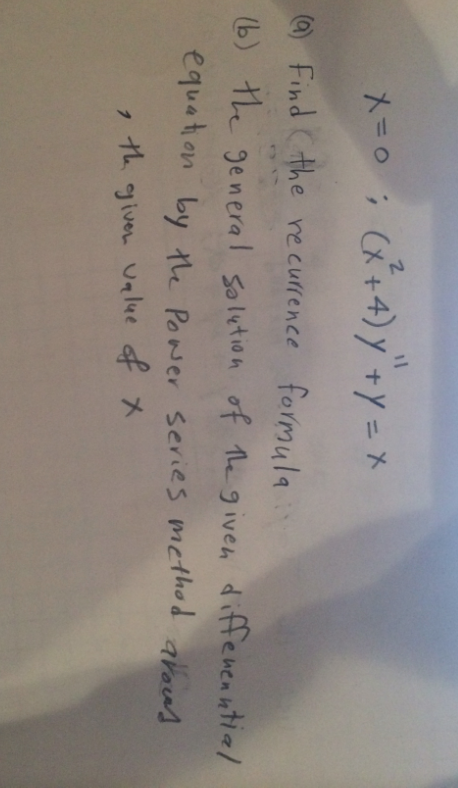 x=0 ; (x²+4) y" + y = x
(a) find the recurrence formula
(b) the general solution of the given differenential
equation by the Power series method
, th given value of x